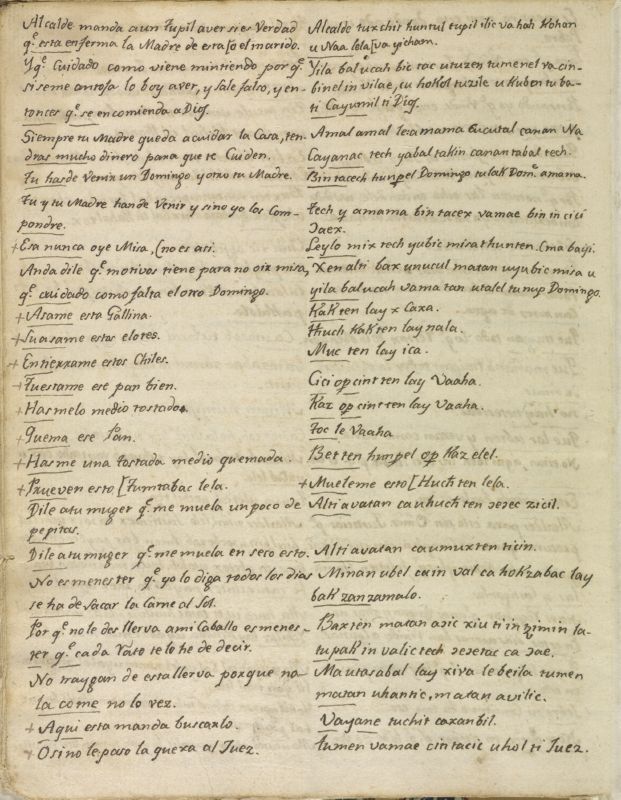 Alcalde manda a un Tupil a ver si es Verdad
q.e esta enferma la Madre de esta [o el marido.
Y q.e Cuidado como viene mintiendo por q.e
si se me antoja lo boy a ver, y sale falso, y en-
tonces q.e se encomienda a Dios.
Siempre tu Madre queda a cuidar la Casa, ten-
dras mucho dinero para que te Cuiden.
Tu has de Venir un Domingo y otro tu Madre.
Tu y tu Madre han de Venir y si no yo los Com-
pondre.
+ Esa nunca oye Misa, (no es asi.
Anda dile q.e motivos tiene para no oir misa,
q.e cuidado como falta el otro Domingo.
+ Asame esta Gallina.
+ Suasame estos elotes.
+ Entierrame estos Chiles.
+ Tuestame ese pan bien.
+ Hasmelo medio tostado.
+ Quema ese Pan.
+ Hasme una tostada medio quemada.
+ Prueven esto [Tumtabac lela.
Dile a tu muger q.e me muela un poco de
pepitas.
Dile a tu muger q.e me muela en seso esto.
No es menester q.e yo lo diga todos los dias
se ha de sacar la Carne al Sol.
Por q.e no le des llerva a mi Caballo es menes-
ter q.e cada rato te lo he de decir.
No traygan de esta llerva porque no
la come no lo vez.
+ Aqui esta manda buscarlo.
+ O si no le paso la quexa al Juez.
Alcalde tuxchit huntul tupil ilic va hah Kohan
u Naa lola [va yicham.
Yila balucah bic tac utuzen tumenel va cin-
binel in vilae, cu hokol tuzile u Kuben tuba-
ti Cayumil ti Dios.
Amal amal leia mama cucutal canan Na
Cayanac tech yabal takin canantabal tech.
Bin tacech hunpel Domingo tulak Dom.o amama.
Tech y amama bin tacex vamae bin in cici
Jaex.
Leylo mix tech yubic misa thunten. (ma bayi.
Xen alti bax unucul matan uyubic misa u
yila balucah vama tan utalel tu nup Domingo.
KaK ten lay x Caxa.
Huch KaK ten lay nala.
Muc ten lay ica.
Cici op cint ten lay Vaaha.
Kaz op cint ten lay Vaaha.
Toc le Vaaha
Bet ten hunpel op Kaz elel.
+ Mueleme esto [Huch ten lela.
Alti avatan ca uhuch ten ɔeɔec zicil.
Alti avatan ca umux ten ticin.
Minan ubel ca in val ca hokzabac lay
bak zanzamalo.
Bax ten matan aɔic xiu ti in tzimin la-
tupak in valic tech ɔeɔetac ca ɔae.
Ma utasabal lay xiva le beila tumen
matan uhantic, matan avilic.
Vayane tuchit caxanbil.
tumen vamae cin tacic uhol ti Juez.